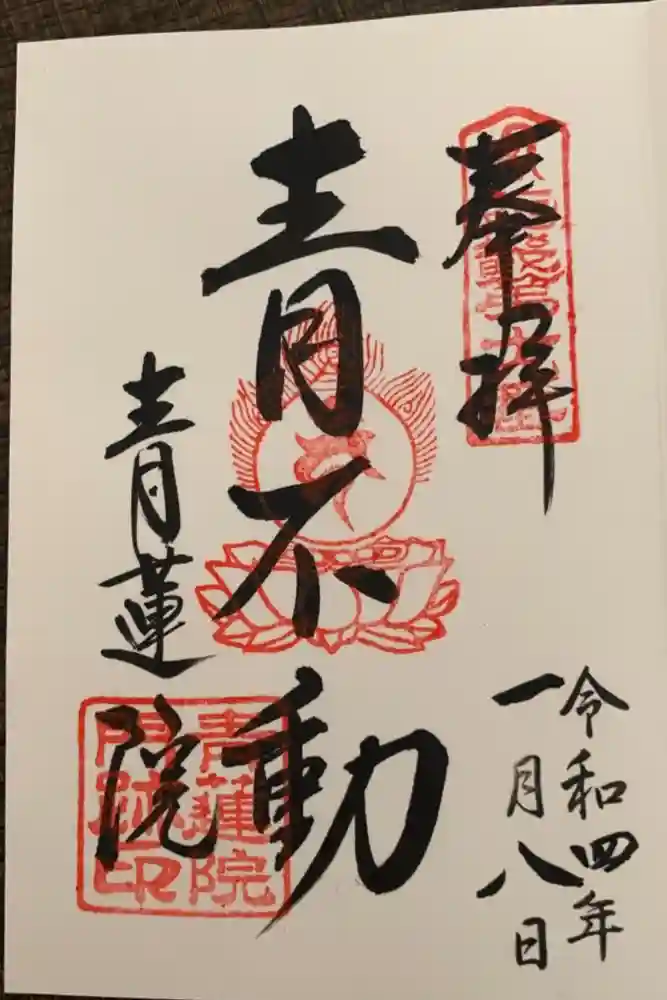 奉拝
令和四年
一月八日
青不動
青蓮院
青蓮院
門跡印